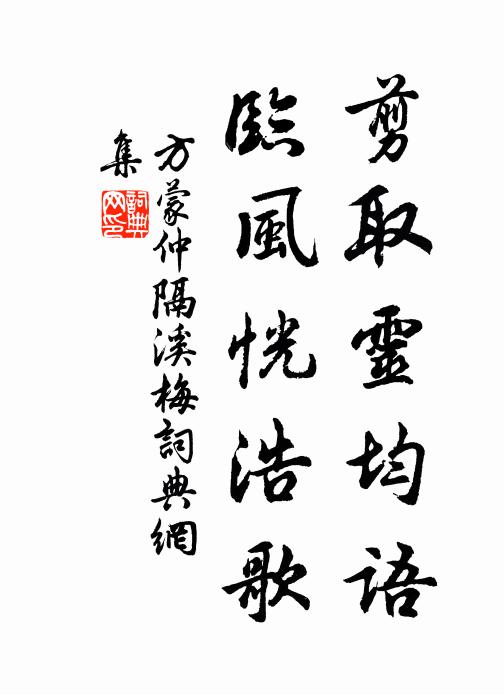 剪取靈均語
臨風恍浩歌
方蒙仲隔溪梅詞典網
集
詞典網印